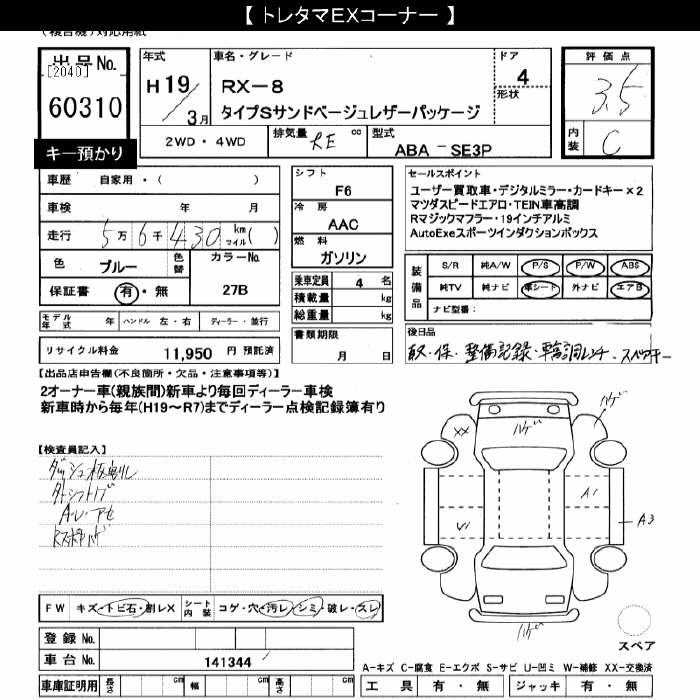 【 トレタマEXコーナー 】
(複合機)対応用紙
出品No.
[2040]
60310
キー預かり
年式
H19/3月
車名・グレード
RX-8
タイプSサンドベージュレザーパッケージ
ドア
4
形状
評価点
3.5
内装
C
2WD・4WD
排気量 RE cc
型式 ABA-SE3P
車歴 自家用・( )
車検 年 月
走行 5万6千430 km マイル( )
色 ブルー 色替
カラーNo.
27B
保証書 有・無
モデル年式 年 ハンドル 左・右 ディーラー・並行
リサイクル料金 11,950 円 預託済
シフト
F6
冷房
AAC
燃料
ガソリン
乗車定員 4 名
積載量 kg
総重量 kg
書類期限
月 日
セールスポイント
ユーザー買取車・デジタルミラー・カードキー×2
マツダスピードエアロ・TEIN車高調
Rマジックマフラー・19インチアルミ
AutoExeスポーツインダクションボックス
装備品
S/R 純A/W P/S P/W ABS
純TV 純ナビ 革シート 外ナビ エアB
ナビ型番:
後日品
取・保・整備記録・車高調レンチ・スペアキー
【出品店申告欄(不良箇所・欠品・注意事項等)】
2オーナー車(親族間)新車より毎回ディーラー車検
新車時から毎年(H19〜R7)までディーラー点検記録簿有り
【検査員記入】
A・レ・アセ
FW キズ・トビ石・割レX シート内装 コゲ・穴・汚レ・シミ・破レ・スレ
登録No.
車台No. 141344
車庫証明用 長さ cm 幅 cm 高さ cm
XX
ハゲ
ハゲ
A1
A3
U1
ハゲ
スペア
A-キズ C-腐食 E-エクボ S-サビ U-凹ミ W-補修 XX-交換済
工具 有・無 ジャッキ 有・無